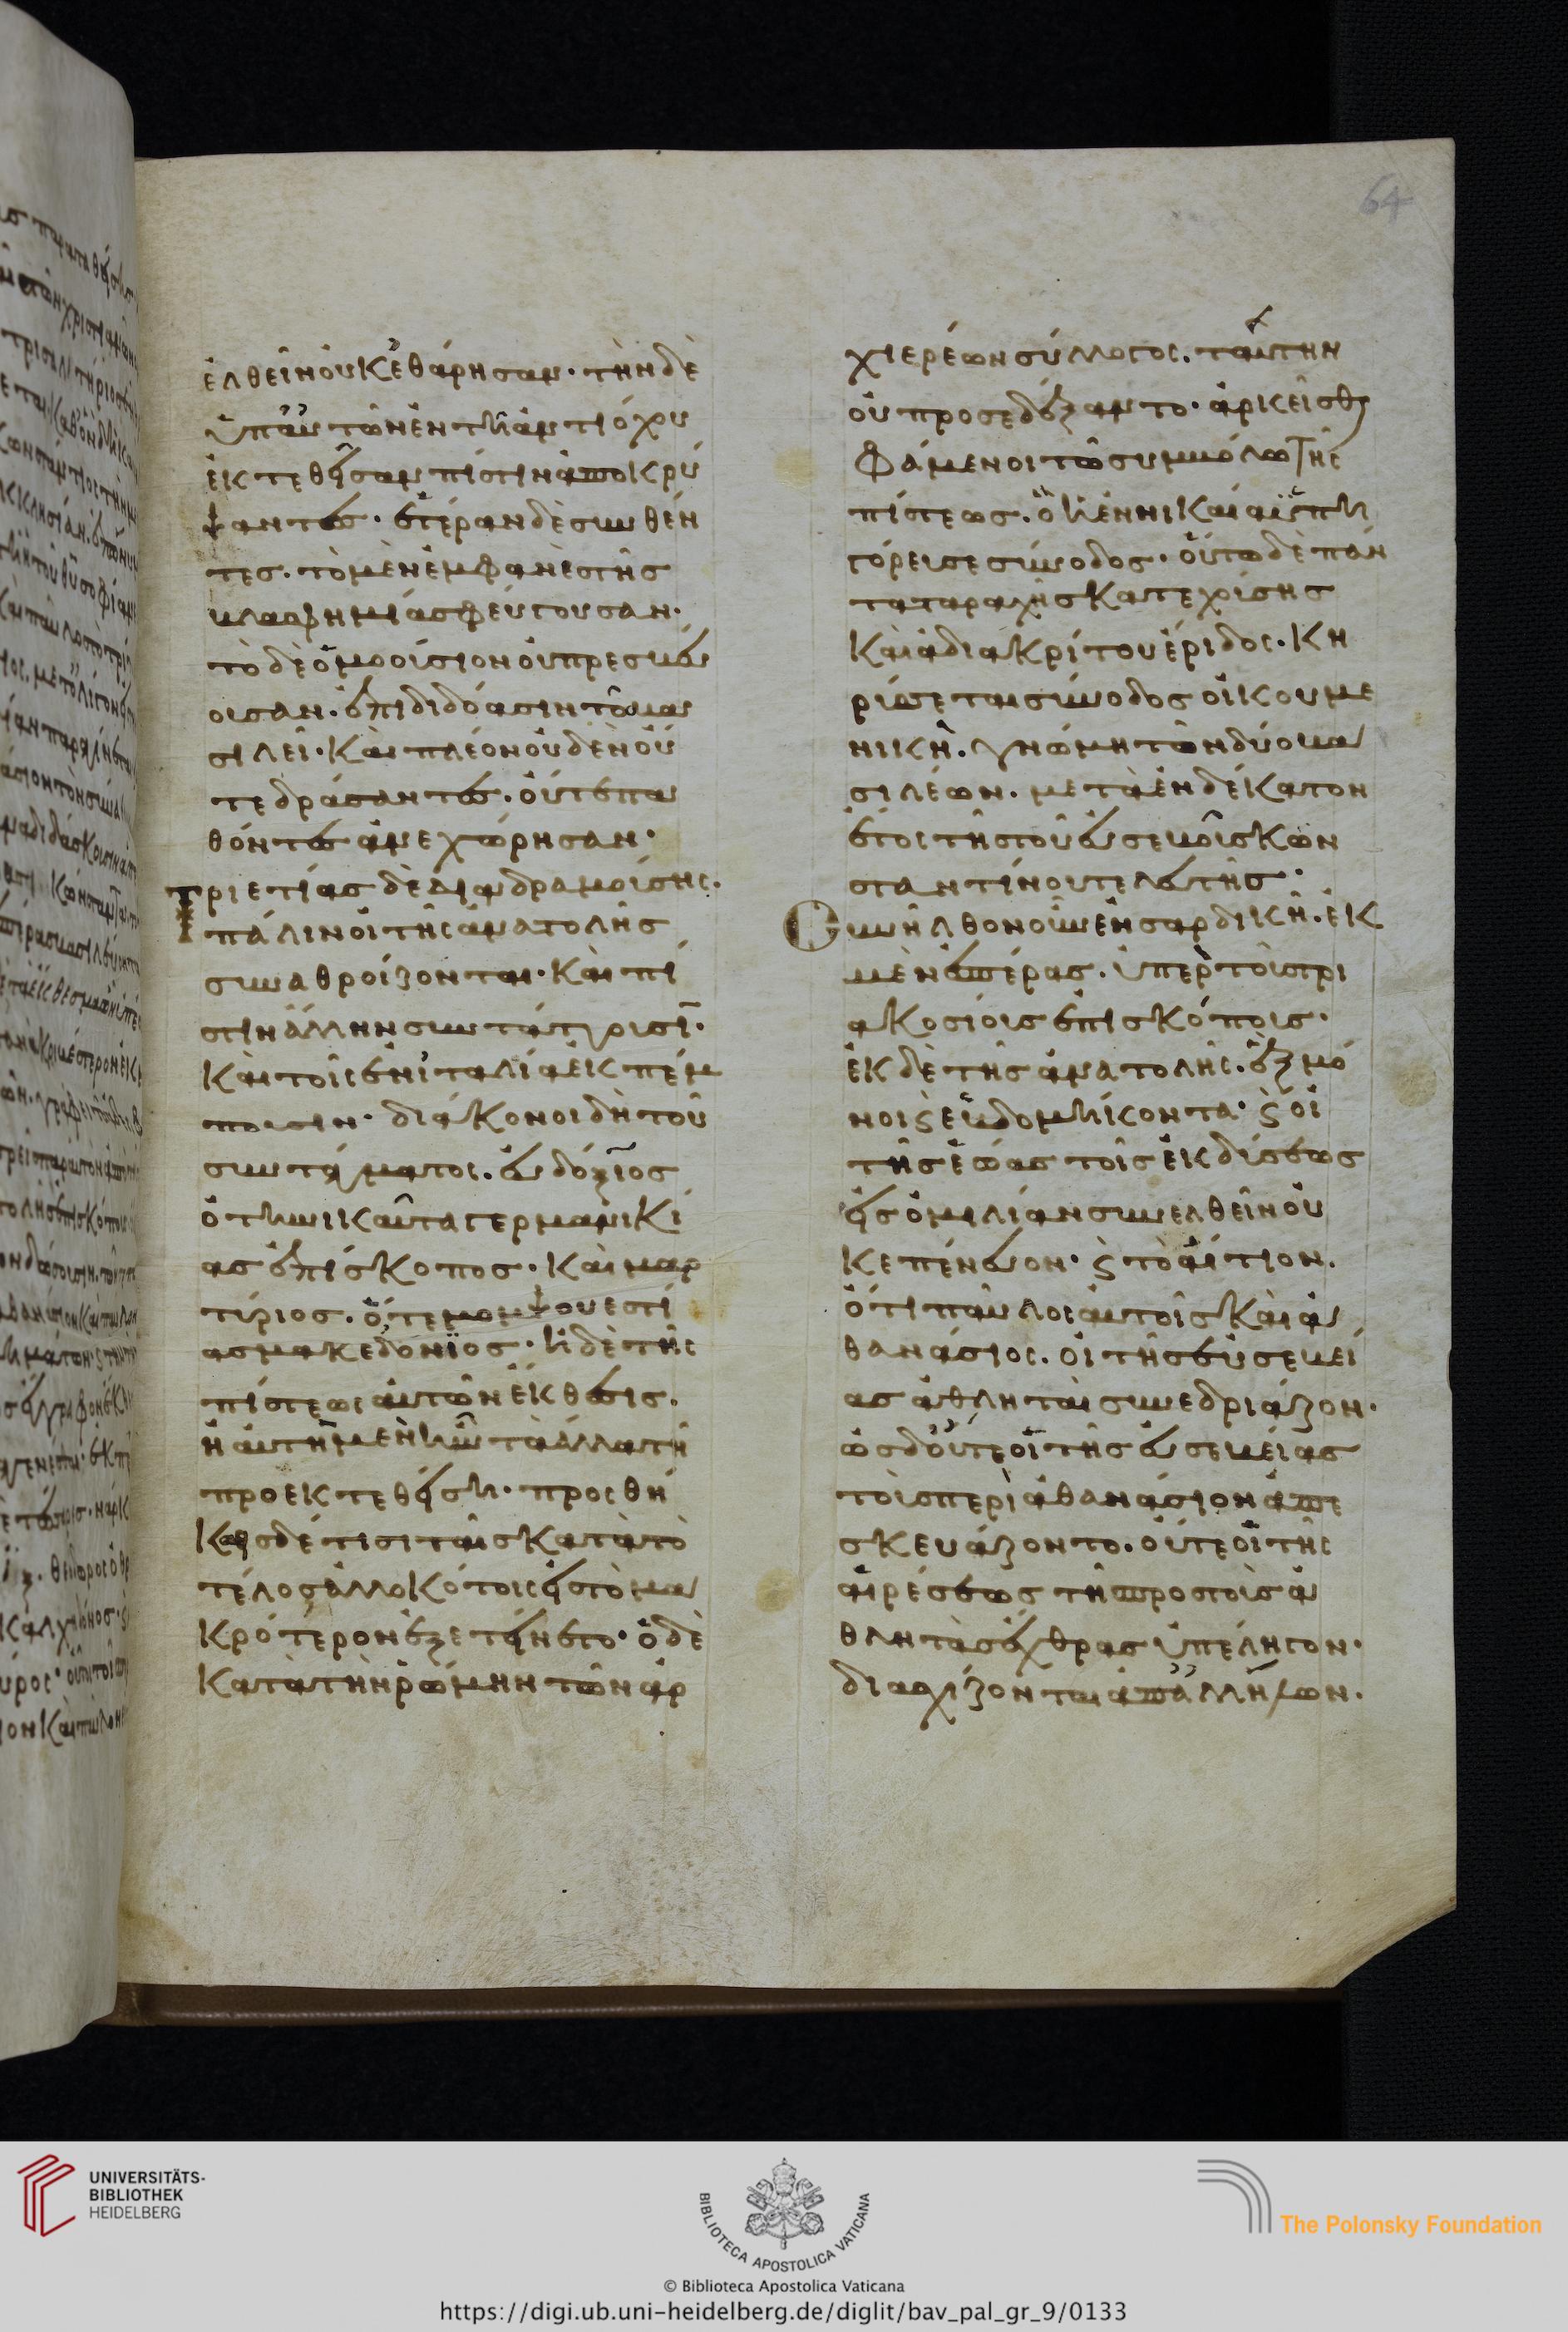 64
ἐλθεῖν οὐκ ἐθάρησαν· τὴν δὲ
ὑπ' αὐτῶν ἐν τῆ ἀντιόχου
ἐκτεθεῖσαν πίστιν ἀποκρύ
ψαντες· ἑτέραν δὲ συνθέν
τες. τὸ μὲν ἐμφανὲς τῆς
βλασφημίας φεύγουσαν·
τὸ δὲ ὁμοούσιον οὐ πρεσβεύ
ουσαν. ἐπιδιδόασιν τῶ βα
σιλεῖ· καὶ πλέον οὐδὲν οὔ
τε δράσαντες. οὔτε πα
θόντες ἀνεχώρησαν·
Τριετίας δὲ διαδραμούσης.
πάλιν οἱ τῆς ἀνατολῆς
συναθροίζονται· καὶ πί
στιν ἄλλην συντάττουσι·
καὶ τοῖς ἐν ἰταλία ἐκπέμ
πουσιν· διάκονοι δὴ τοῦ
συντάγματος. εὐδόξιος
ὁ τηνικαῦτα γερμανικί
ας ἐπίσκοπος· καὶ μαρ
τύριος. ὅτε μομψουεστί
ας μακεδόνιος· ἡ δὲ τῆς
πίστεως αὐτῶν ἔκθεσις.
ἡ αὐτὴ μὲν ἦν τὰ ἄλλα τῆ
προεκτεθείση· προσθή
καις δέ τισι ταῖς κατὰ τὸ
τέλος ἀλλοκότοις εἰς τὸ μα
κρότερον ἐξετείνετο· ὁ δὲ
κατὰ τὴν ῥώμην τῶν ἀρ
χιερέων σύλλογος. ταύτην
οὐ προσεδέξαντο· ἀρκεῖσθαι
φάμενοι τῶ συμβόλω τῆς
πίστεως. ὃ ἡ ἐν νικαία ὑπη
γόρευσε σύνοδος· οὕτω δὲ πάν
τα ταραχῆς κατεχούσης
καὶ ἀδιακρίτου ἔριδος. κη
ρύσσεται σύνοδος οἰκουμε
νικὴ. γνώμη τῶν δύο βα
σιλέων. μετὰ ἑνδέκατον
ἔτος τῆς τοῦ εὐσεβοῦς κων
σταντίνου τελευτῆς·
Συνῆλθον οὖν ἐν σαρδικῆ. ἐκ
μὲν ἑσπέρας. ὑπὲρ τοὺς τρι
ακοσίους ἐπισκόπους·
ἐκ δὲ τῆς ἀνατολῆς. ἓξ μό
νοι ϛ ἑβδομήκοντα· ϛ οἱ
τῆς ἑώας τοῖς ἐκ δύσεως
εἰς ὁμιλίαν συνελθεῖν οὐ
κ ἐπένευον· ϛ τὸ αἴτιον.
ὅτι παῦλος αὐτοῖς καὶ ἀ
θανάσιος. οἱ τῆς εὐσεβεί
ας ἀθληταὶ συνεδρίαζον·
ὡς δ' οὔτε οἱ τῆς εὐσεβείας
τοὺς περὶ ἀθανάσιον ἀπε
σκευάζοντο. οὔτε οἱ τῆς
αἱρέσεως τῆς πρὸς τοὺς ἀ
θλητὰς ἔχθρας ὑπέληγον·
διασχίζονται ἀπ' ἀλλήλων.
UNIVERSITÄTS-
BIBLIOTHEK
HEIDELBERG
BIBLIOTECA APOSTOLICA VATICANA
The Polonsky Foundation
© Biblioteca Apostolica Vaticana
https://digi.ub.uni-heidelberg.de/diglit/bav_pal_gr_9/0133